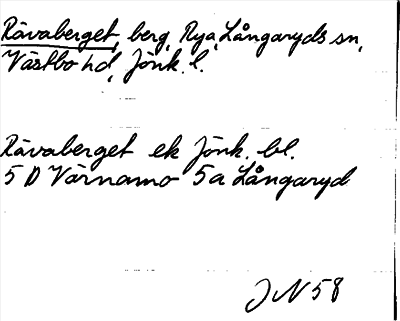 Rävaberget, berg, Rya, Långaryds sn,
Västbo hd, Jönk. l.
Rävaberget ek Jönk. bl.
5 D Värnamo 5a Långaryd
JN 58